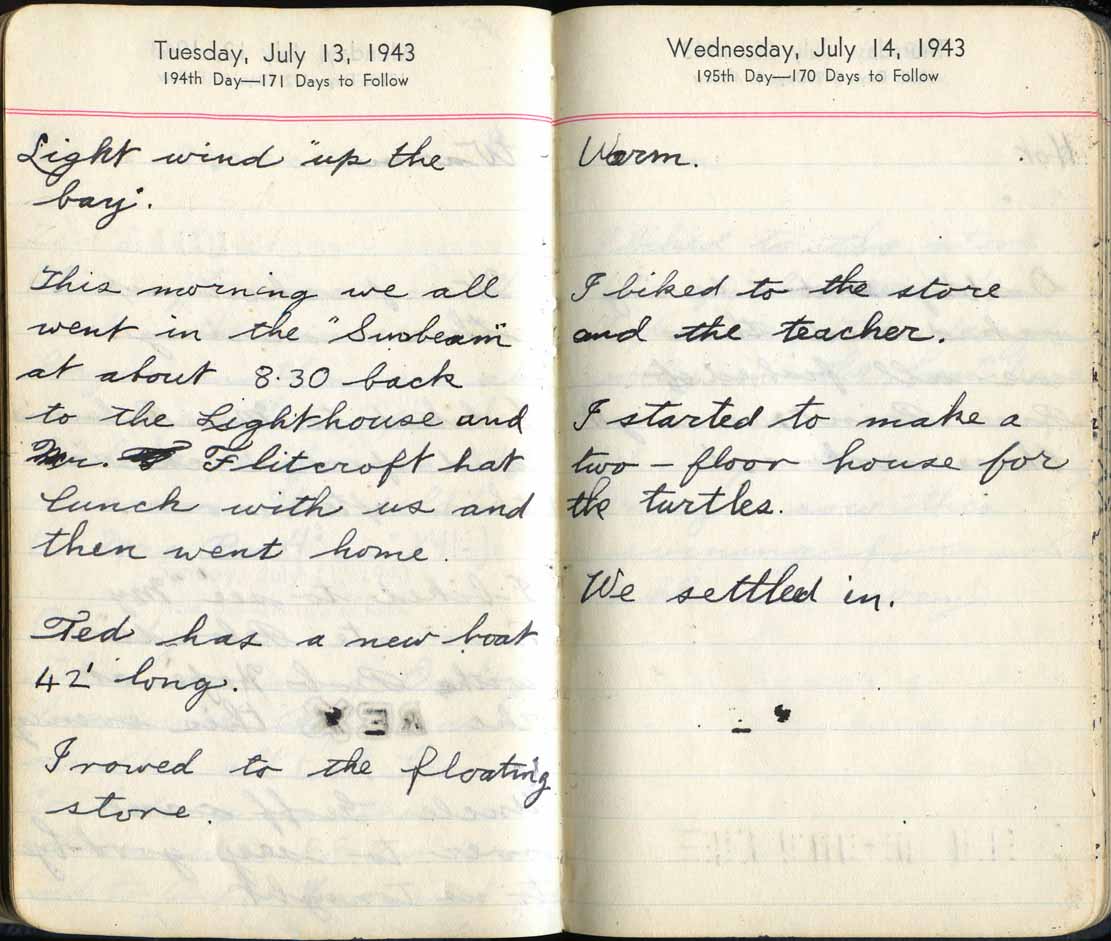 Tuesday, July 13, 1943
194th Day—171 Days to Follow
Light wind "up the
bay".
This morning we all
went in the "Sunbeam"
at about 8.30 back
to the Lighthouse and
Mr. Flitcroft hat
lunch with us and
then went home.
Ted has a new boat
42' long.
I rowed to the floating
store.
Wednesday, July 14, 1943
195th Day—170 Days to Follow
Warm.
I biked to the store
and the teacher.
I started to make a
two-floor house for
the turtles.
We settled in.